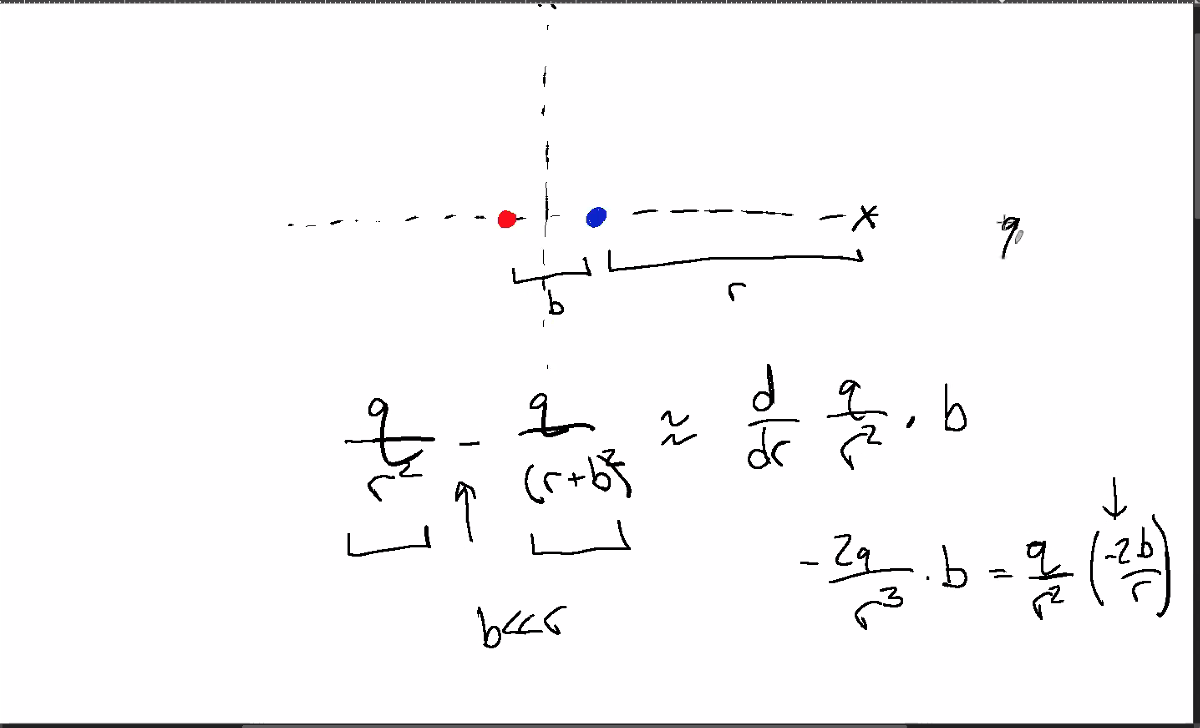 x
q
b
r
q/r² - q/(r+b)² ≈ d/dr q/r² · b
- 2q/r³ · b = q/r² (-2b/r)
b<<r